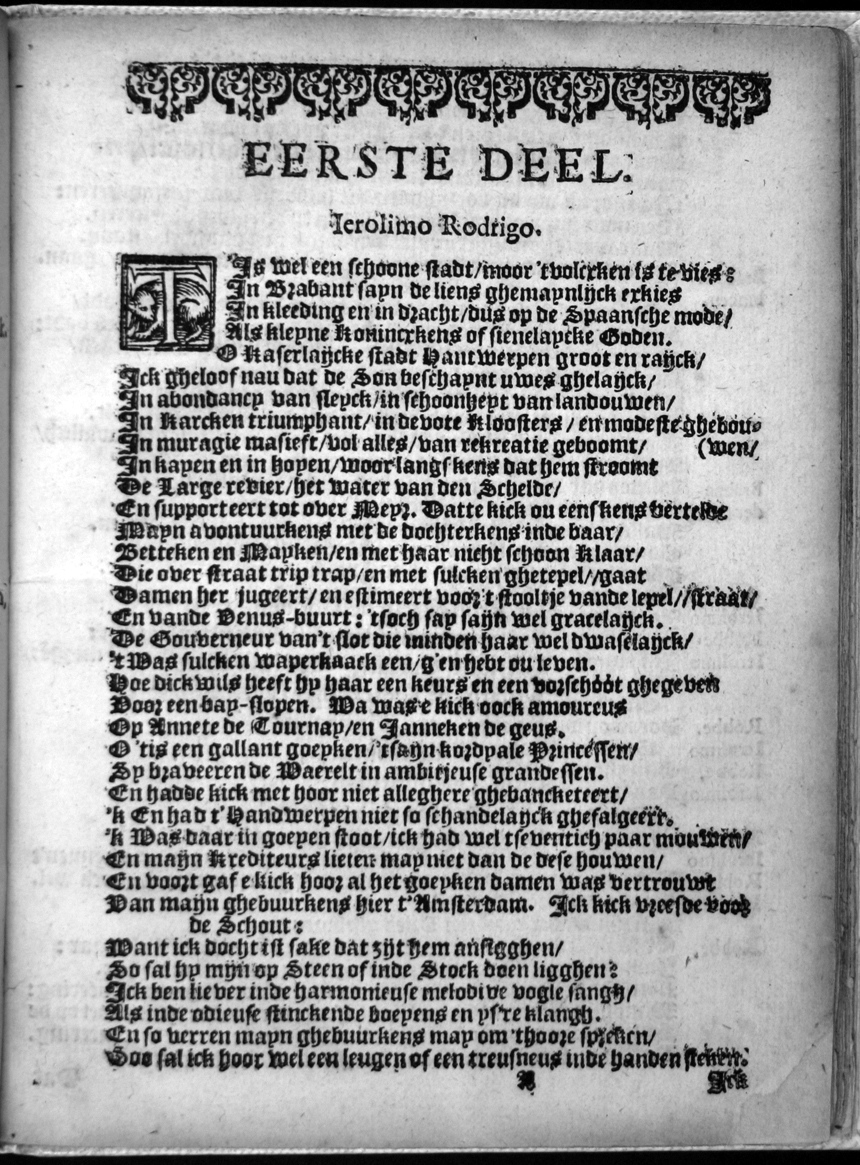 EERSTE DEEL.
Ierolimo Rodrigo.
T'Is wel een schoone stadt/moor 'tvolcxken is te vies:
In Brabant sayn de liens ghemaynlijck exkies
In kleeding en in dracht/dus op de Spaansche mode/
Als kleyne Konincxkens of sienelaycke Goden.
O Kaserlaijcke stadt Hantwerpen groot en raijck/
Ick gheloof nau dat de Son beschaynt uwes ghelaijck/
In abondancy van sleyck/in schoonheyt van landouwen/
In Karcken triumphant/in devote Kloosters/en modeste ghebou-
In muragie masieft/vol alles/van rekreatie geboomt/ (wen/
In kayen en in hoyen/woor langs kens dat hem stroomt
De Large revier/het water van den Schelde/
En supporteert tot over Meyr. Datte kick ou eenskens vertelde
Mayn avontuurkens met de dochterkens inde baar/
Betteken en Mayken/en met haar nicht schoon Klaar/
Die over straat trip trap/en met sulcken ghetepel//gaat
Damen her jugeert/en estimeert voor 't stooltje vande lepel//straat/
En vande Venus-buurt: 'tsoch say saijn wel gracelayck.
De Gouverneur van't slot die minden haar wel dwaselayck/
't Was sulcken wayerkaack een/g'en hebt ou leven.
Hoe dickwils heeft hy haar een keurs en een vorschóót ghegeven
Voor een bay-slopen. Wa was e kick oock amoureus
Op Annete de Tournay/en Janneken de geus.
O 'tis een gallant goeyken/'tsayn kordyale Princessen/
Sy braveeren de Waerelt in ambitjeuse grandessen.
En hadde kick met hoor niet alleghere ghebancketeert/
'k En had t'Handwerpen niet so schandelaijck ghefalgeert.
'k Was daar in goeyen stoot/ick had wel tseventich paar mouwen/
En maijn Krediteurs lieten may niet dan de dese houwen/
En voort gaf e kick hoor al het goeyken damen was vertrouwt
Van maijn ghebuurkens hier t'Amsterdam. Ick kick vreesde voor
de Schout:
Want ick docht ist sake dat zijt hem ansegghen/
So sal hy mijn op Steen of inde Stock doen ligghen:
Ick ben liever inde harmonieuse melodi ve vogle sangh/
Als inde odieuse stinckende boeyens en ys're klangh.
En so verren mayn ghebuurkens may om 'thoore spreken/
Soo sal ick hoor wel een leugen of een treusneus inde handen steken.
A Ick